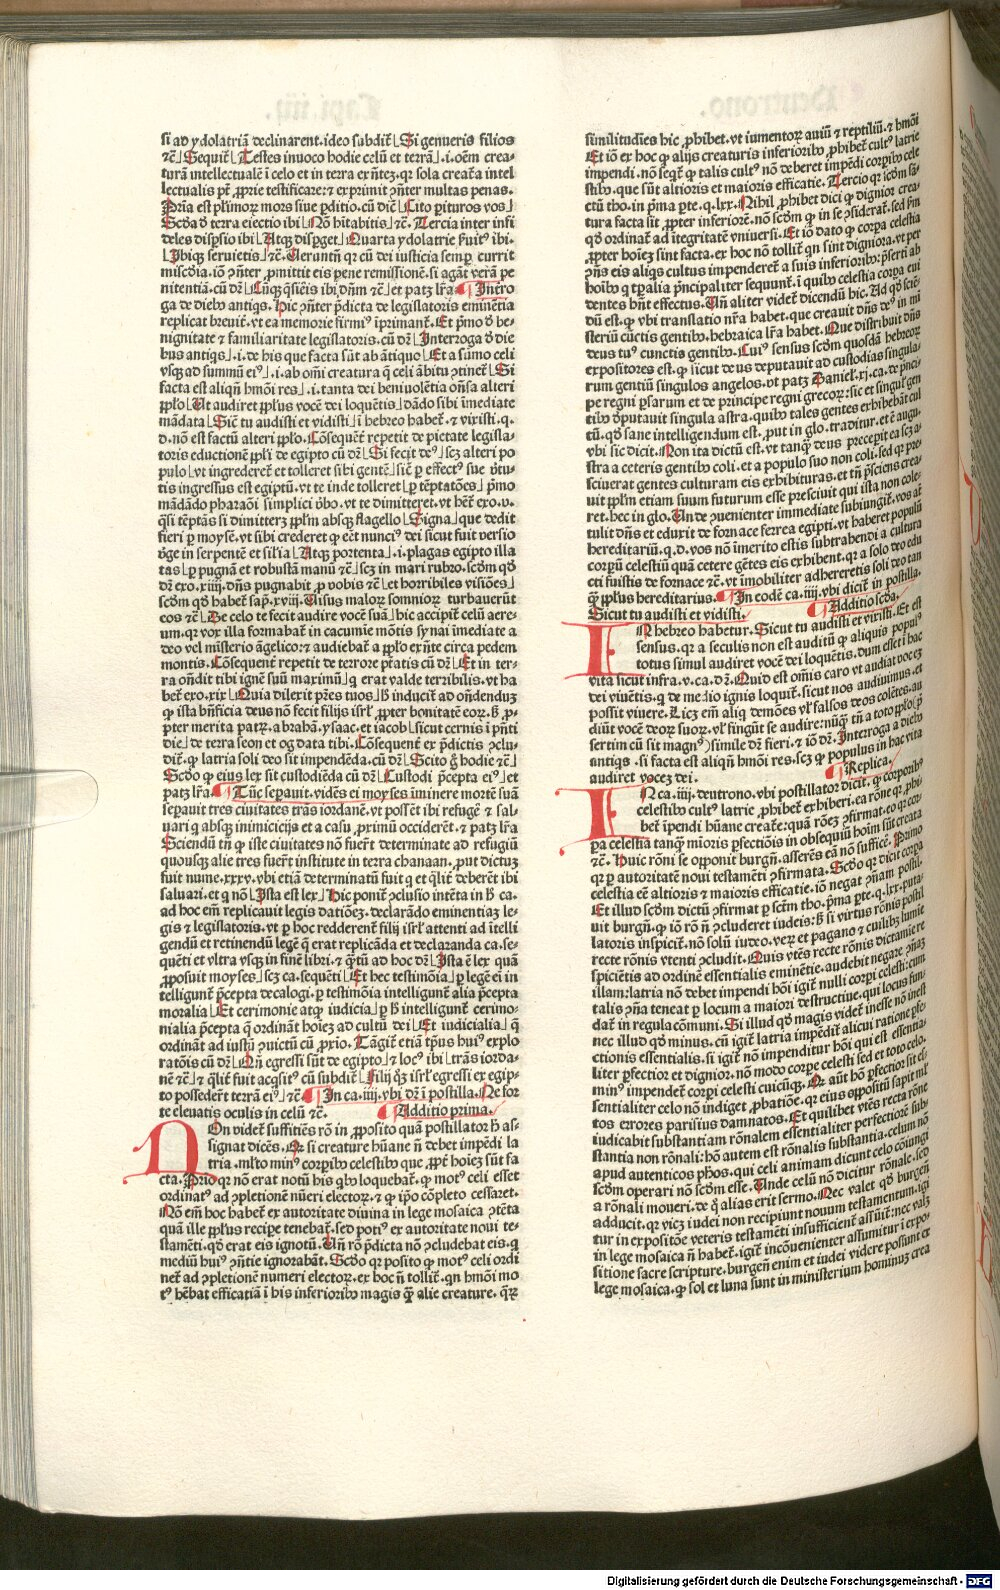 si ad ydolatriā declinarent. ideo subdit̄ Si genueris filios
⁊c̄ Sequit̄ Testes inuoco hodie celū et terrā .i. oēm crea-
turā intellectualē ī celo et in terra exn̄tez. qr sola creat̄a intel
lectualis pt̄ ꝓprie testificare: ⁊ exprimit ꝯn̄ter multas penas.
Pria est pl̄imoꝝ mors siue ꝑditio. cū dic̄ Cito ꝑituros vos
Scd̄a ꝺ terra eiectio ibi Nō habitabitis ⁊c̄. Tercia inter infi
deles disꝑsio ibi Atqꝫ disꝑget Quarta ydolatrie ẜuitꝰ ibi.
Ibiqꝫ seruietis ⁊c̄. Ueruntn̄ qr cū dei iusticia semꝑ currit
miscd̄ia. iō ꝯn̄ter ꝓmittit eis pene remissionē. si agāt verā pe
nitentiā. cū dr̄ Cūqꝫ q̄sieis ibi dn̄m ⁊c̄ et patꝫ lr̄a. ¶ Intr̄o
ga de diebꝰ antiqs. Hic ꝯn̄ter p̄dicta de legislatoris eminētia
replicat breuit̄. vt ea memorie firmiꝰ īprimant̄. Et pͥmo ꝺ be-
nignitate ⁊ familiaritate legislatoris. cū dr̄ Interroga ꝺ die
bus antiqs .i. de his que facta sūt ab ātiquo Et a sūmo celi
vsqꝫ ad summū eiꝰ .i. ab om̄i creatura q̄ celi ābitu ꝯtinet̄ Si
facta est aliqn̄ hmōi res .i. tanta dei beniuolētia on̄sa alteri
pplo Ut audiret ppl̄us vocē dei loquētis dādo sibi īmediate
mādata Sic̄ tu audisti et vidisti ī hebreo habet̄. ⁊ vixisti. q.
d. nō est factū alteri pplo. Cōseqūet̄ repetit de pietate legisla-
toris eductionē ppl̄i de egipto cū dr̄ Si fecit deꝰ scꝫ alteri po
pulo vt ingrederet̄ et tolleret sibi gentē sic̄ ꝑ effectꝰ sue ꝟtu-
tis ingressus est egiptū. vt te inde tolleret ꝑ tēptatōes pͥmo
mādādo pharaōi simplici ꝟbo. vt te dimitteret. vt hēt̄ exo. v.
q̄si tēptās si dimitterꝫ ppl̄m absqꝫ flagello Signa que dedit
fieri ꝑ moysē. vt sibi crederet̄ ꝙ eēt nunciꝰ dei sicut fuit versio
ꝟge in serpentē et sil̄ia Atqꝫ portenta .i. plagas egipto illa
tas ꝑ pugnā et robustā manū ⁊c̄ scꝫ in mari rubro. scd̄m qd̄
dr̄ exo. xiiij. dn̄s pugnabit ꝓ vobis ⁊c̄ et horribiles visiōes
scd̄m qd̄ habet̄ sap. xvij. Uisus maloꝝ somnioꝝ turbauerūt
eos ⁊c̄ De celo te fecit audire vocē suā hic accipit̄ celū aere-
um. qr vox illa formabat̄ in cacumīe mōtis synai īmediate a
deo vel mīsterio āgelico: ⁊ audiebat̄ a pplo exn̄te circa pedem
montis. Cōsequent̄ repetit de terrore pr̄atis cū dr̄ Et in ter-
ra on̄dit tibi ignē suū maximū q̄ erat valde terribilis. vt ha
bet̄ exo. xix Quia dilexit pr̄es tuos h̄ inducit̄ ad on̄dendū
ꝙ ista bn̄ficia deus nō fecit filijs isrl̄ ꝓpter bonitatē eoꝝ. ẜꝫ ꝓ-
pter merita patꝝ. abrahā. ysaac. et iacob sicut cernis ī p̄nti
die de terra seon et og data tibi. Cōsequent̄ ex p̄dictis ꝯclu-
dit̄. ꝙ latria soli deo sit impendēda. cū dr̄ Scito g̊ hodie ⁊c̄
Scd̄o ꝙ eius lex sit custodiēda cū dr̄ Custodi p̄cepta eiꝰ et
patꝫ lr̄a. ¶ Tūc seꝑauit. vidēs ei moyses īminere mortē suā
seꝑauit tres ciuitates trās iordanē. vt possēt ibi refugē ⁊ sal-
uari q absqꝫ inimicicijs et a casu ꝓximū occiderēt. ⁊ patꝫ lr̄a
Sciendū tn̄ ꝙ iste ciuitates nō fuer̄t determinate ad refugiū
quousqꝫ alie tres fuer̄t institute in terra chanaan. ꝓut dictuꝫ
fuit nume. xxxv. vbi etiā determinatū fuit q et q̄lit̄ deberēt ibi
saluari. et q nō Ista est lex Hic ponit̄ ꝯclusio intēta in h̄ ca.
ad hoc em̄ replicauit legis datiōeꝫ. declarādo eminentiaꝫ le-
gis ⁊ legislatoris. vt ꝑ hoc redderent̄ filij isrl̄ attenti ad ītelli
gendū et retinendū legē q̄ erat replicāda et declaranda ca. se-
quēti et vltra vsqꝫ in finē libri. ⁊ q̄tū ad hoc dr̄ Ista ē lex quā
ꝓposuit moyses scꝫ ca. sequēti Et hec testimōia ꝑ legē eī in
telligunt̄ p̄cepta decalogi. ꝑ testimōia intelligunt̄ alia p̄cepta
moralia Et cerimonie atqꝫ iudicia ꝑ h̄ intelligunt̄ cerimo-
nialia p̄cepta q̄ ordināt hoīeꝫ ad cultū dei Et iudicialia q̄
ordināt ad iustū ꝯuictū cū ꝓxīo. Tāgit̄ etiā tp̄us huiꝰ explo
ratōis cū dr̄ Qn̄ egressi sūt de egipto ⁊ locꝰ ibi trās iorda-
nē ⁊c̄ ⁊ q̄lit̄ fuit acq̄sitꝰ cū subdit̄ Filij qͦꝫ isrl̄ egressi ex egip-
to possederūt terrā eiꝰ ⁊c̄ ¶ In ca. iiij. vbi dr̄ ī postilla. Ne for
te eleuatis oculis in celū ⁊c̄. ¶ Additio prima.
NOn videt̄ suffitiēs rō in ꝓposito quā postillator h̄ as-
signat dicēs. Qr si creature hūane n̄ debet impēdi la
tria. ml̄to minꝰ corꝑibꝰ celestibꝰ que ꝓpt̄ hoīeꝫ sūt fa
cta. Prīo qr nō erat notū his qbꝰ loquebat̄. ꝙ motꝰ celi esset
ordinatꝰ ad ꝯpletionē nūeri electoꝝ. ⁊ ꝙ ip̄o cōpleto cessaret.
Nō em̄ hoc habet̄ ex autoritate diuina in lege mosaica ꝯtēta
quā ille ppl̄us reciꝑe tenebat̄. sed potiꝰ ex autoritate noui te-
stamēti. qd̄ erat eis ignotū. Un̄ rō p̄dicta nō ꝯcludebat eis. q
mediū huiꝰ ꝯn̄tie ignorabāt. Scd̄o qr posito ꝙ motꝰ celi ordi
net̄ ad ꝯpletionē numeri electoꝝ. ex hoc n̄ tollit̄. qn hmōi mo
tꝰ hēbat efficatiā ī his inferioribꝰ magis q̄ꝫ alie creature. qꝝ
similitudīes hic ꝓhibet. vt iumentoꝝ auiū ⁊ reptiliū. ⁊ hmōi
Et iō ex hoc ꝙ alijs creaturis inferioribꝰ ꝓhibet̄ cultꝰ latrie
impendi. nō seqt̄ ꝙ talis cultꝰ nō deberet impēdi corꝑibꝰ cele
stibꝰ. que sūt altioris et maioris efficatie. Tercio qr scd̄m sā-
ctū tho. in pͥma ꝑte. q. lxx. Nihil ꝓhibet dici ꝙ dignior crea-
tura facta sit ꝓpter inferiorē. nō scd̄m ꝙ in se ꝯsiderat̄. sed ẜm
qd̄ ordinat̄ ad ītegritatē vniuersi. Et iō dato ꝙ corꝑa celestia
ꝓpter hoīeꝫ sint facta. ex hoc nō tollit̄ qn sint digniora. vt ꝑ
ꝯn̄s eis aliqs cultus impenderet̄ a suis inferioribꝰ: p̄serti ab
hoībꝰ q tꝑalia p̄ncipaliter sequunt̄. ī quibꝰ celestia corꝑa eui
dentes hn̄t effectus. Un̄ aliter videt̄ dicendū hic. Ad qd̄ sciē-
dū est. ꝙ vbi translatio nr̄a habet. que creauit dn̄s deꝰ in mi
steriū cūctis gentibꝰ. hebraica lr̄a habet. Que distribuit dn̄s
deus tuꝰ cunctis gentibꝰ. Cuiꝰ sensus scd̄m quosdā hebreoꝝ
expositores est. ꝙ sicut deus deputauit ad custodias singula-
rum gentiū singulos angelos. vt patꝫ Daniel̄. xj. ca. de p̄nci-
pe regni ꝑsarum et de principe regni grecoꝝ: sic et singul̄ gen
tibꝰ dꝑutauit singula astra. quibꝰ tales gentes exhibebāt cul
tū. qd̄ sane intelligendum est. ꝓut in glo. tradit̄. et ē augu.
vbi sic dicit. Non ita dictū est. vt tanqꝫ deus preceꝑit ea scꝫ a-
stra a ceteris gentibꝰ coli. et a populo suo non coli. sed qr pre-
sciuerat gentes culturam eis exhibituras. et tn̄ p̄sciens crea-
uit ppl̄m etiam suum futurum esse presciuit qui ista non cole-
ret. hec in glo. Unde ꝯuenienter immediate subiungit̄. vos aūt
tulit dn̄s et eduxit de fornace ferrea egipti. vt haberet populū
hereditariū. q. d. vos nō īmerito estis subtrahendi a cultura
corꝑū celestiū quā cetere gētes eis exhibent. qr a solo deo edu
cti fuistis de fornace ⁊c̄. vt imobiliter adhereretis soli deo tan
q̄ꝫ ppl̄us hereditarius. ¶ In eodē ca. iiij. vbi dicit̄ in postilla.
Sicut tu audisti et vidisti. ¶ Additio scd̄a.
IN hebreo habetur. Sicut tu audisti et vixisti. Et est
sensus. qr a seculis non est auditū ꝙ aliquis populꝰ
totus simul audiret vocē dei loquētis. dum esset ī hac
vita sicut infra. v. ca. dr̄. Quid est om̄is caro vt audiat vocē
dei viuētis. q de medio ignis loquit̄. sicut nos audiuimus. et
possit viuere. Licꝫ em̄ aliq demōes vl̄ falsos deos colētes. au
diūt vocē deoꝝ suoꝝ. vl̄ fingūt se audire: nūq̄ꝫ tn̄ a toto pplo (p̄
sertim cū sit magnꝰ) simile dr̄ fieri. ⁊ iō dr̄. Interroga a diebꝰ
antiqs. si facta est aliqn̄ hmōi res. scꝫ ꝙ populus in hac vita
audiret vocez dei. ¶ Replica.
IN ca. iiij. deutrono. vbi postillator dicit. ꝙ corꝑibꝰ
celestibꝰ cultꝰ latrie ꝓhibet̄ exhiberi. ea rōne qr ꝓhi
bet̄ īpendi hūane create: quā rōeꝫ ꝯfirmat. eo qr cor
ꝑa celestia tanqꝫ mīoris ꝑfectiōis in obsequiū hoīm sūt creata
⁊c̄. Huic rōni se opponit burgn̄. asserēs eā nō suffice. Primo
qr ꝑ autoritatē noui testamēti ꝯfirmata. Scd̄o qr dicit corꝑa
celestia eē altioris ⁊ maioris efficatie. iō negat ꝯn̄am postil.
Et illud scd̄m dictū ꝯfirmat ꝑ sct̄m tho. pͥma ꝑte. q. lxx. puta-
uit burgn̄. ꝙ iō rō n̄ ꝯcluderet iudeis: ẜꝫ si virtus rōnis postil
latoris inspicit̄. nō solū iudeo. veꝝ et pagano ⁊ cuilibꝫ lumie
recte rōnis vtenti ꝯcludit. Quis vtēs recte rōnis dictamīe re
spiciētis ad ordinē essentialis eminētie. audebit negare ꝯn̄aꝫ
illam: latria nō debet impendi hōi igit̄ nulli corꝑi celesti: cum
talis ꝯn̄a teneat ꝑ locum a maiori destructiue. qui locus fun-
dat̄ in regula cōmuni. Si illud qd̄ magis videt̄ inesse nō inest
nec illud qd̄ minus. cū igit̄ latria impēdit̄ alicui ratione ꝑfe-
ctionis essentialis. si igit̄ nō impenditur hōi qui est essentia-
liter ꝑfectior et dignior. nō modo corꝑe celesti sed et toto celo.
minꝰ impendet̄ corꝑi celesti cuicūqꝫ. Qr aūt hō ꝑfectior sit es-
sentialiter celo nō indiget ꝓbatiōe. qr eius oppositū sapit ml̄
tos errores parisius damnatos. Et quilibet vtēs recta rōne
iudicabit substantiam rōnalem essentialiter perfectiorē sub-
stantia non rōnali: hō autem est rōnalis substantia. celum nō
apud autenticos ph̄os. qui celi animam dicunt celo cōiungi
scd̄m operari nō scd̄m esse. Unde celū nō dicitur rōnale. sed
a rōnali moueri. de q̄ alias erit sermo. Nec valet qd̄ burgeñ.
adducit. qr vicꝫ iudei non recipiunt nouum testamentum. igi
tur in expositōe veteris testamēti insufficienter assūit̄: nec valꝫ
in lege mosaica n̄ habet̄. igit̄ incōuenienter assumitur ī expo-
sitione sacre scripture. burgeñ. enim et iudei videre possunt ex
lege mosaica. ꝙ sol et luna sunt in ministerium hominuꝫ crea
Digitalisierung gefördert durch die Deutsche Forschungsgemeinschaft - DFG